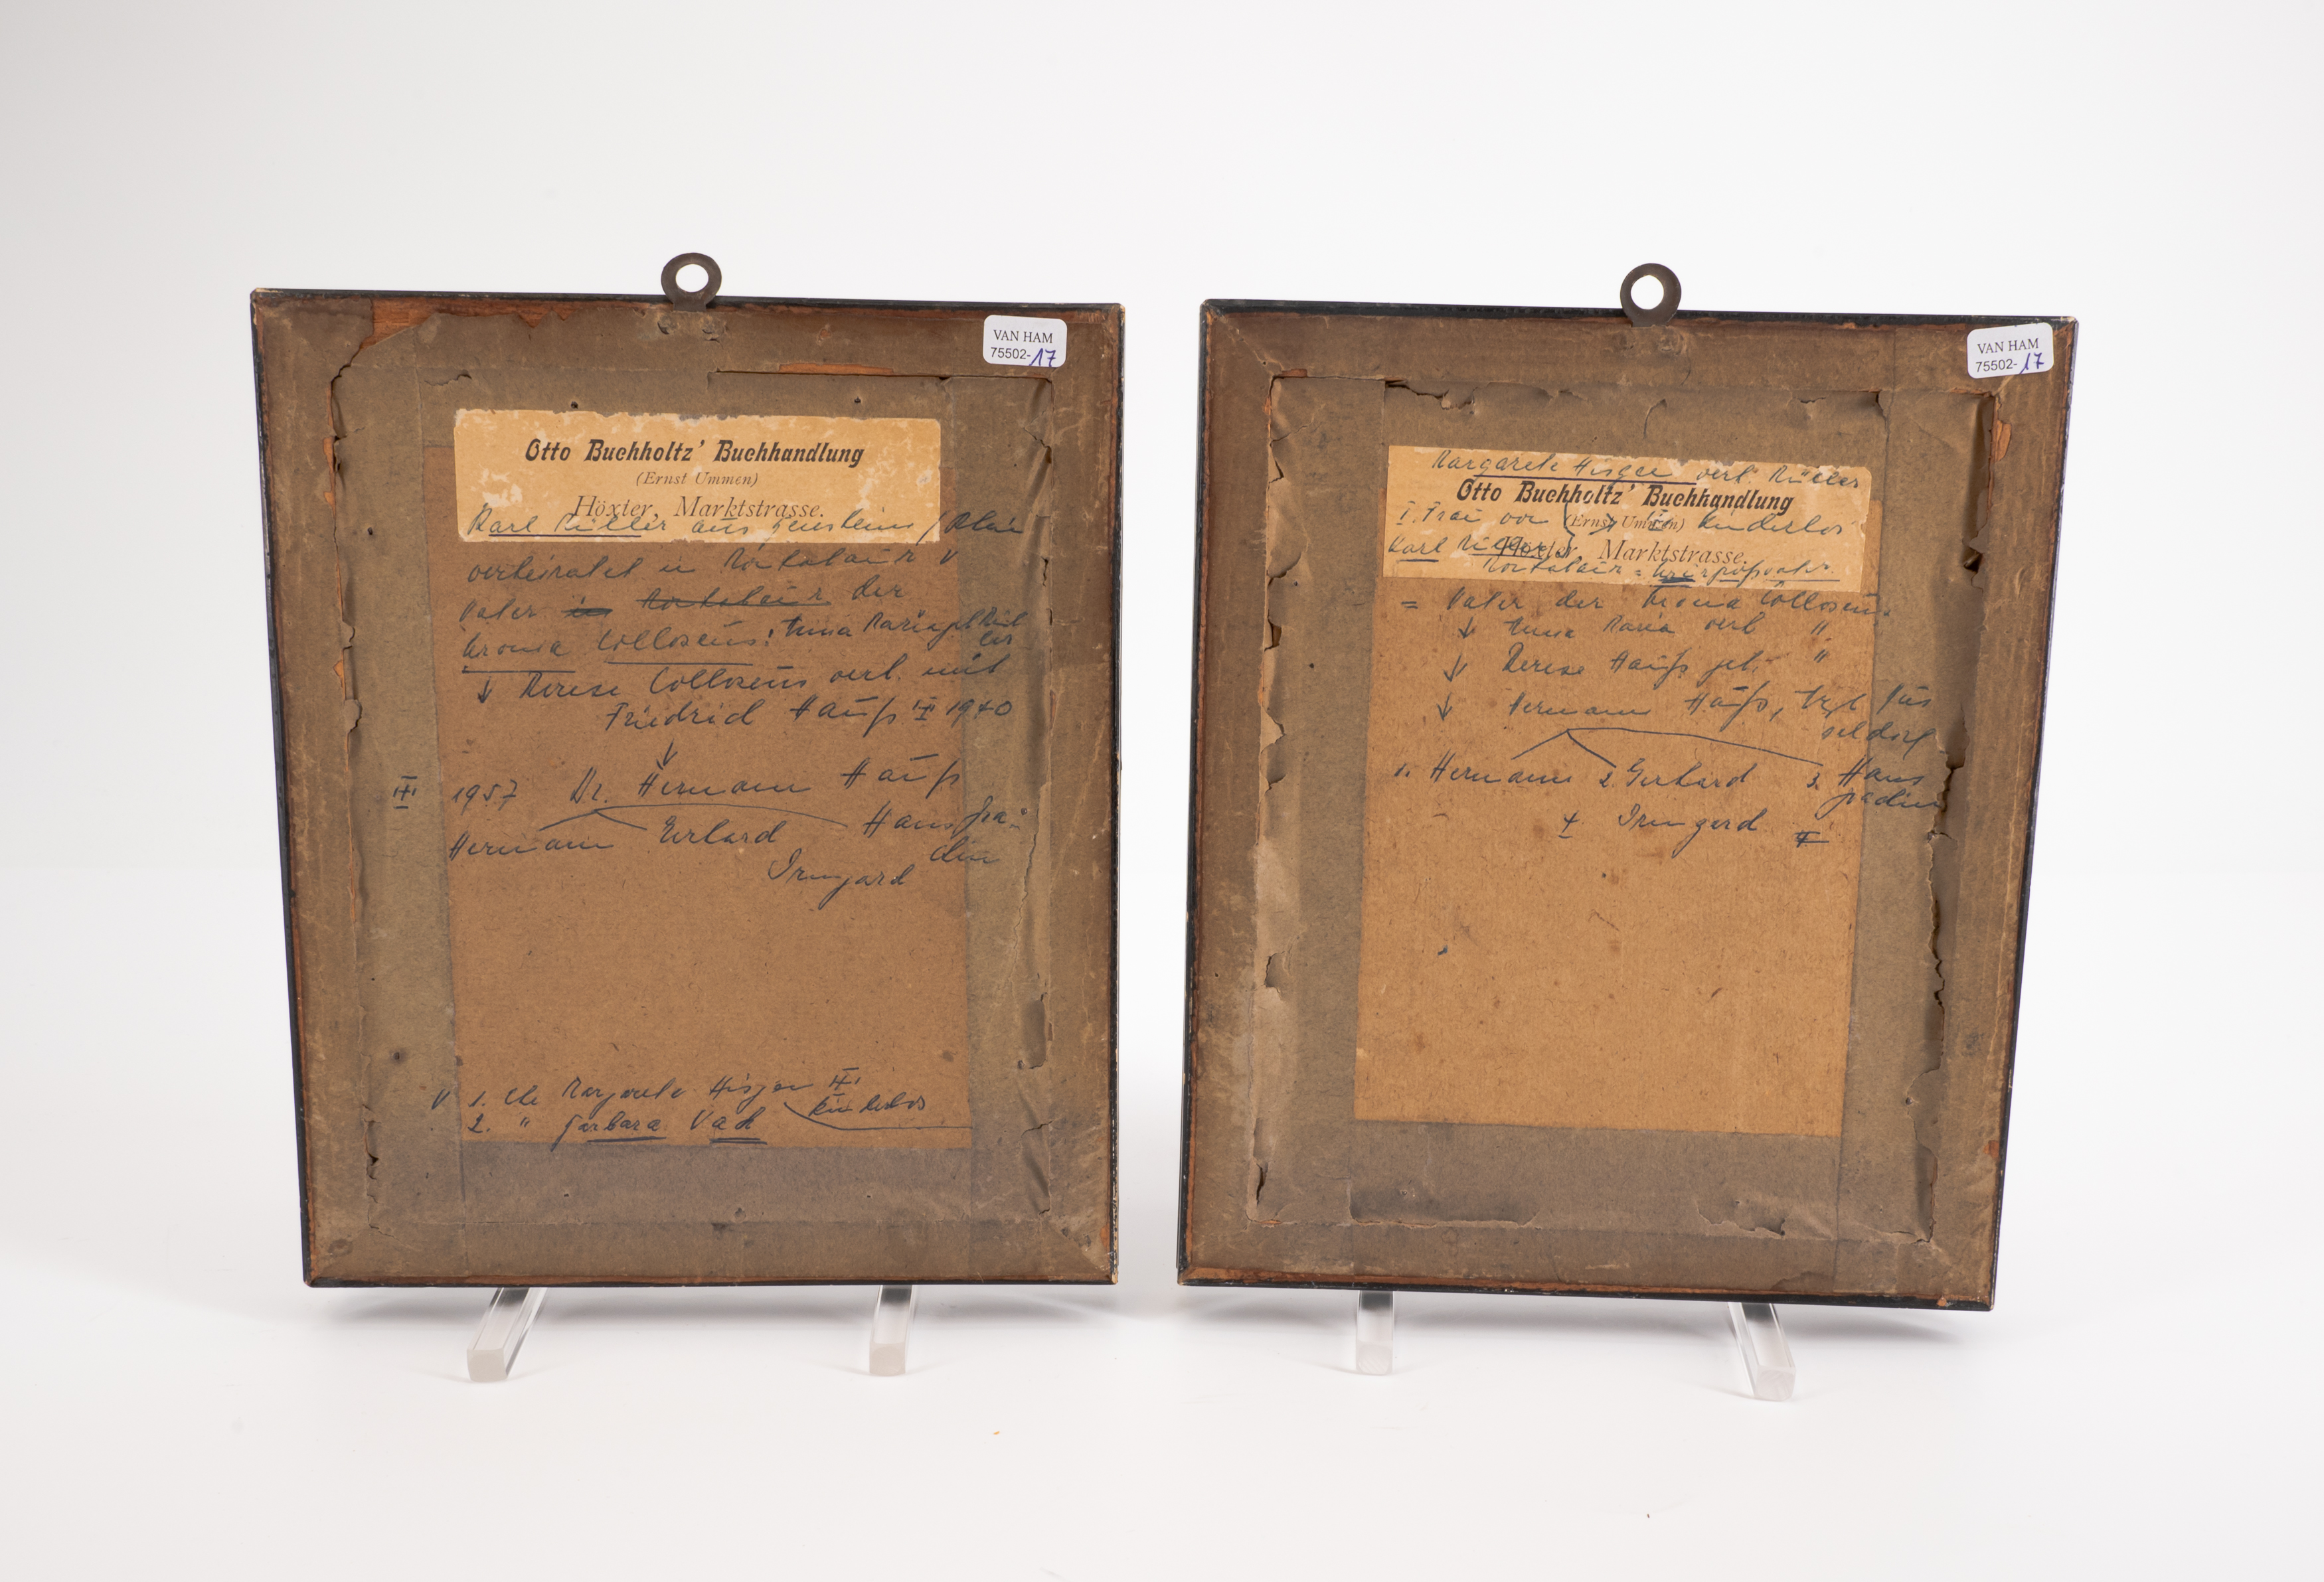 VAN HAM
75502-17
Otto Buchholtz' Buchhandlung
(Ernst Ummen)
Höxter, Marktstrasse.
Karl Müller aus
verheiratet in Montabaur V
Vater in Montabaur der
Colloseus: Anna Maria
↓ Therese Colloseus verh. mit
Friedrich Hauß 1940
↓
1957 Dr. Hermann Hauß
Hermann Gerhard Hans Joa-
chim
Irmgard
V 1. Ehe Margarete Hisgen
kinderlos
2. " Barbara Vach
VAN HAM
75502-17
Margarete Hisgen verh. Müller
Otto Buchholtz' Buchhandlung
I. Frau von kinderlos
(Ernst Ummen)
Karl Müller
Höxter, Marktstrasse.
Montabaur = Urgroßvater
= Vater der Colloseus
↓ Anna Maria verh. "
↓ Therese Hauß geb. "
↓ Hermann Hauß, Düs
seldorf
1. Hermann 2. Gerhard 3. Hans
Joachim
Irmgard